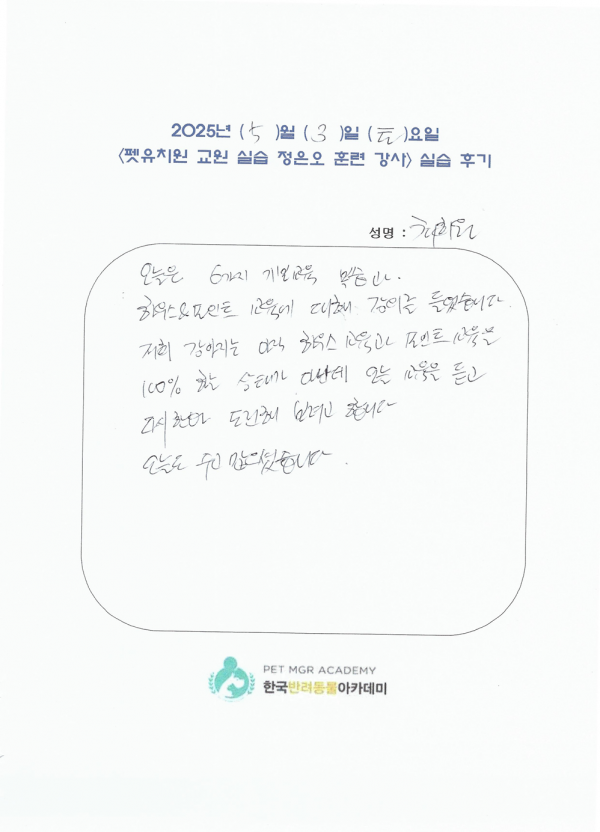 2025년 ( 5 )월 ( 3 )일 (토)요일
<펫유치원 교원 실습 정은오 훈련 강사> 실습 후기
성명 :
오늘은 6가지 기본교육 복습하고.
하우스&포인트 교육에 대해 강의를 들었습니다.
저희 강아지는 아직 하우스 교육과 포인트 교육을
100% 하는 상태가 아닌데 오늘 교육을 듣고
다시한번 도전해 보려고 합니다
오늘도 수고 많으셨습니다.
PET MGR ACADEMY
한국반려동물아카데미